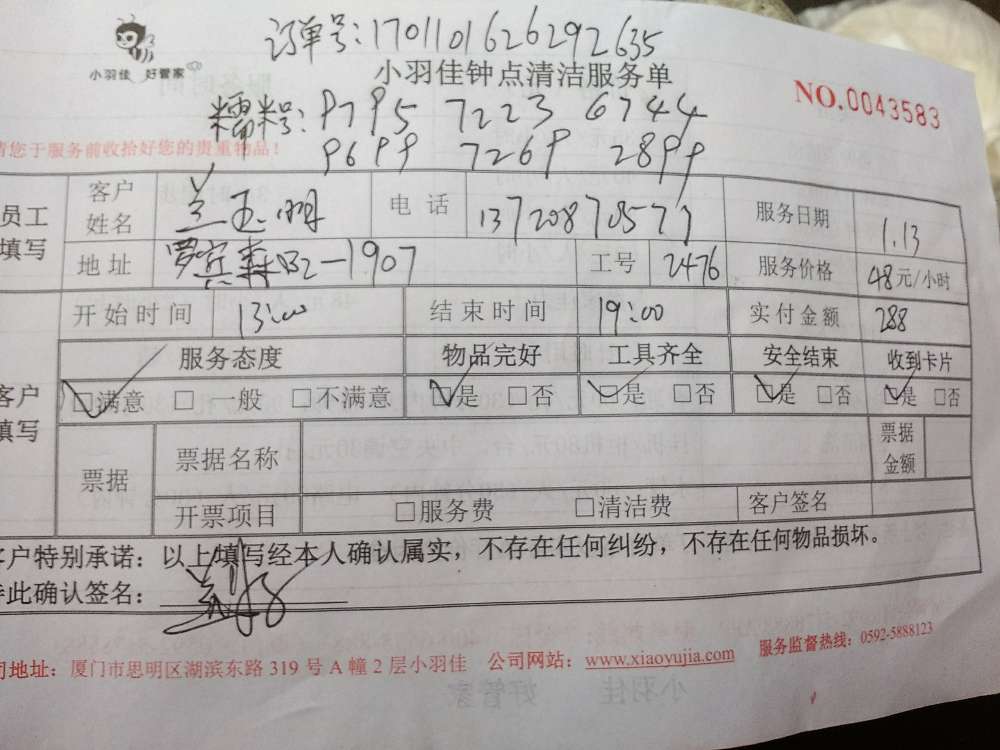 订单号:1701101626292635
小羽佳 好管家
小羽佳钟点清洁服务单
NO.0043583
糯米号: 9795 7223 6744
9699 7269 2899
请您于服务前收拾好您的贵重物品!
员工填写
客户姓名 兰玉明 电话 13720870577 服务日期 1.13
地址 罗宾森B2-1907 工号 2476 服务价格 48元/小时
开始时间 13:00 结束时间 19:00 实付金额 288
客户填写
服务态度 物品完好 工具齐全 安全结束 收到卡片
☑满意 □一般 □不满意 ☑是 □否 ☑是 □否 ☑是 □否 ☑是 □否
票据 票据名称 票据金额
开票项目 □服务费 □清洁费 客户签名
客户特别承诺:以上填写经本人确认属实,不存在任何纠纷,不存在任何物品损坏。
特此确认签名:
公司地址:厦门市思明区湖滨东路 319 号 A 幢 2 层小羽佳 公司网站:www.xiaoyujia.com 服务监督热线:0592-5888123